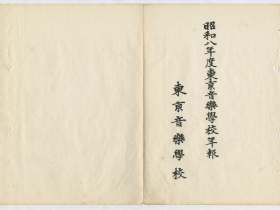 昭和八年度東京音樂學校年報
東京音樂學校